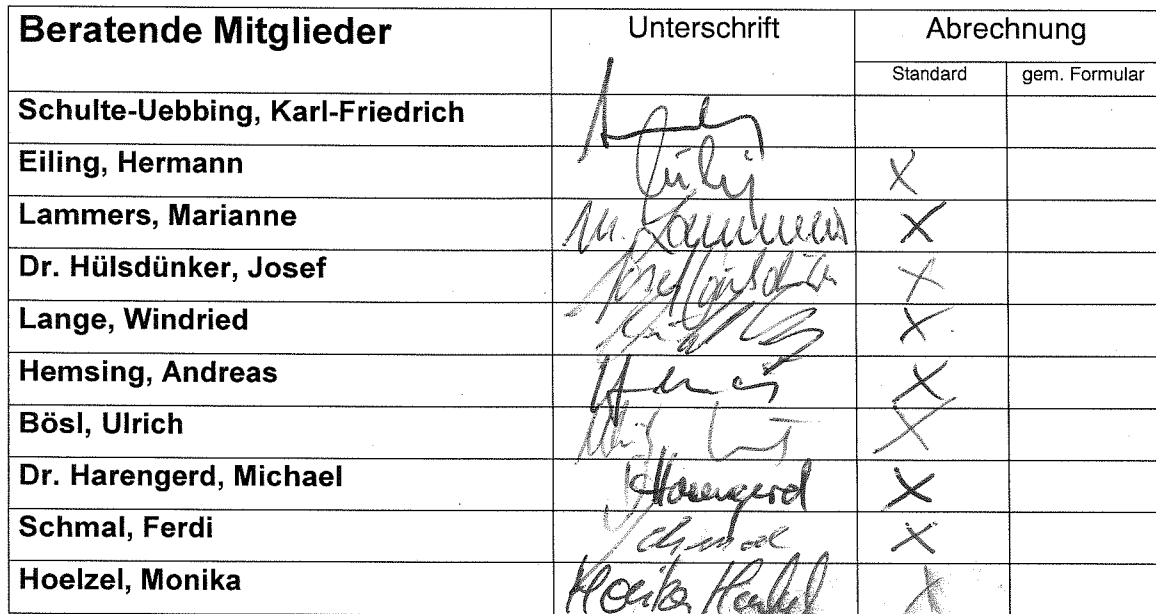 Beratende Mitglieder Unterschrift Abrechnung
Standard gem. Formular
Schulte-Uebbing, Karl-Friedrich
Eiling, Hermann X
Lammers, Marianne M. Lammers X
Dr. Hülsdünker, Josef Josef X
Lange, Windried X
Hemsing, Andreas X
Bösl, Ulrich X
Dr. Harengerd, Michael Harengerd X
Schmal, Ferdi Schmal X
Hoelzel, Monika Monika X